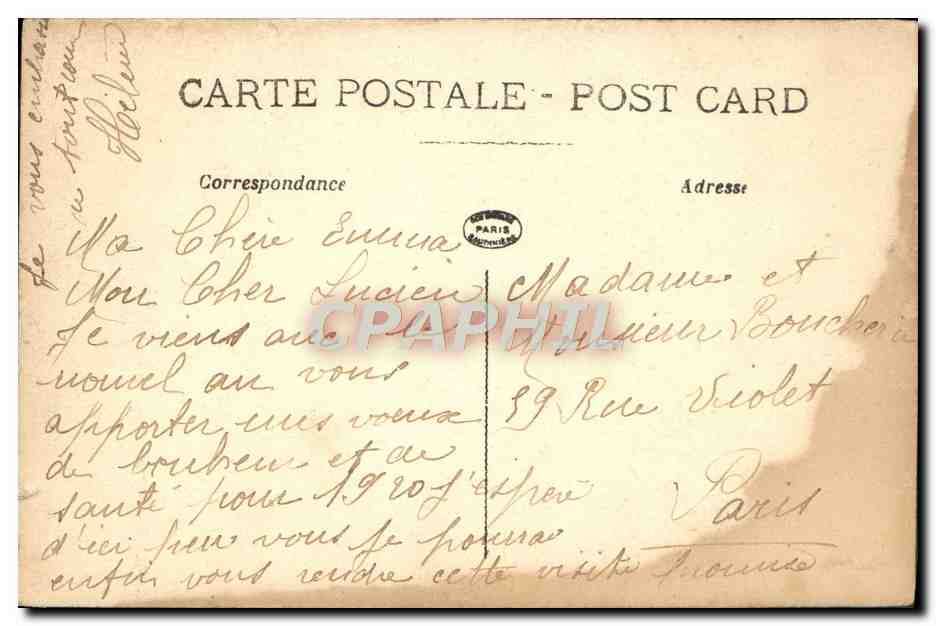 CARTE POSTALE - POST CARD
Correspondance
Adresse
PARIS
Ma Chère Emma
Mon Cher Lucien
Je viens avec le
nouvel an vous
apporter mes voeux
de bonheur et de
santé pour 1920 j'espère
d'ici peu vous je pourrai
enfin vous rendre cette visite promise
Je vous embrasse
tout coeur
Madame et
Monsieur Boucher
59 Rue Violet
Paris
CPAPHIL